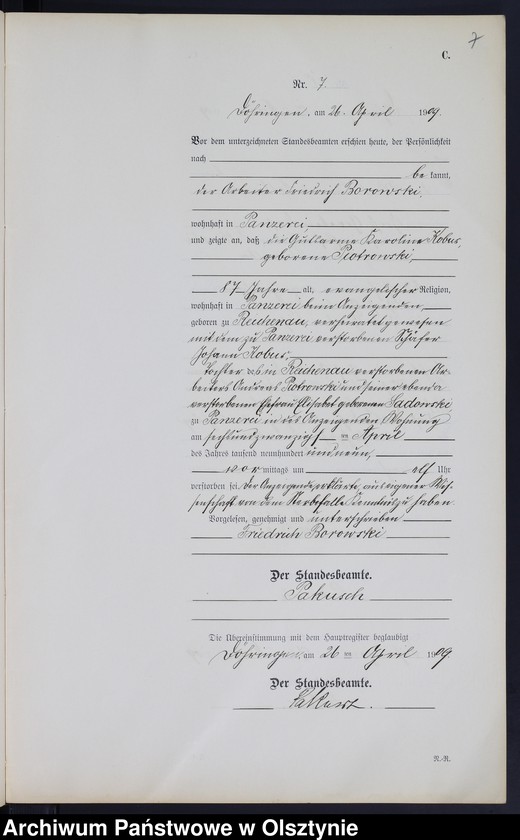 7
C.
Nr. 7.
Döhringen, am 26. April 1909.
Vor dem unterzeichneten Standesbeamten erschien heute, der Persönlichkeit
nach
be kannt,
der Arbeiter Friedrich Borowski,
wohnhaft in Panzerei
und zeigte an, daß die Gutsarme Karoline Kobus,
geborene Piotrowski,
87 Jahre alt, evangelischer Religion,
wohnhaft in Panzerei beim Anzeigenden,
geboren zu Reichenau, verheiratet gewesen
mit dem zu Panzerei verstorbenen Schäfer
Johann Kobus,
Tochter des in Reichenau verstorbenen Ar-
beiters Andreas Piotrowski und seiner ebenda
verstorbenen Ehefrau Elisabet geborenen Sadowski,
zu Panzerei in des Anzeigenden Wohnung
am sechsundzwanzigsten April
des Jahres tausend neunhundert und neun,
vor mittags um elf Uhr
verstorben sei. Der Anzeigende erklärte, aus eigener Wis-
senschaft von dem Sterbefalle Kenntnis zu haben.
Vorgelesen, genehmigt und unterschrieben
Friedrich Borowski
Der Standesbeamte.
Pakusch
Die Übereinstimmung mit dem Hauptregister beglaubigt
Döhringen, am 26 ten April 1909.
Der Standesbeamte.
N.-R.
Archiwum Państwowe w Olsztynie